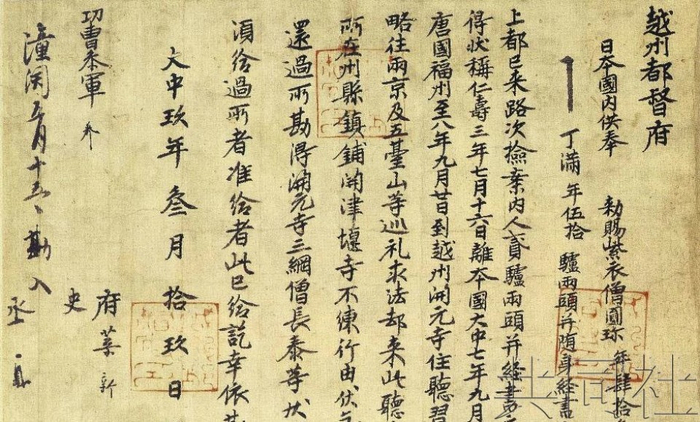 越州都督府
日本國内供奉 勅賜紫衣僧圓珍 年肆拾
丁滿 年伍拾 驢兩頭并随身經書
上都已来路次撿案内人貳驢兩頭并經書
得状稱仁壽三年七月十六日離本國大中七年九月
唐國福州至八年九月廿日到越州開元寺住聽習
略往兩京及五臺山等巡礼求法却来此聽
所在州縣鎮鋪關津堰寺不練行由伏乞
還過所勘得開元寺三綱僧長泰等状
須給過所者准給者此已給訖幸依
大中玖年叄月拾玖日
府葉新
功曹叅軍
史
潼関五月十五日勘入
丞
共同社